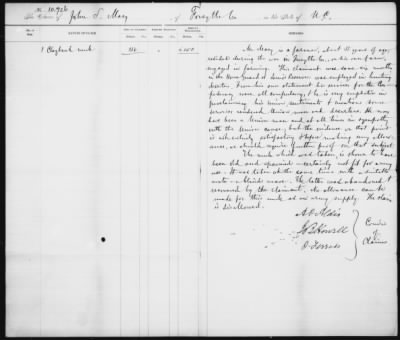 No. 10,926
The Claim of John T. Macy of Forsyth Co in the State of N. C.
NATURE OF CLAIM.
REMARKS.
1 Claybank mule
Mr. Macy is a farmer, about 51 years of age,
resided during the war in Forsyth Co., on his own farm,
engaged in farming. This claimant was some six months
in the Home Guard of
deserters. From his own statement his services for the Con-
federacy were all compulsory, & he is very emphatic in
proclaiming his Union sentiments &
services rendered Union men and deserters. He may
have been a Union man and at all times in sympathy
with the Union cause; but the evidence on that point
is not entirely satisfactory & before making any allow-
ance, we should require further proof on that subject.
The mule which was taken, is shown to have
been old and spavined - certainly not fit for army
use. It was taken at the same time with a
mate - a blind mare. The latter was abandoned &
recovered by the claimant. No allowance can be
made for this mule as an army supply. The claim
is disallowed.
A. O. Aldis
J. B. Howell
O. Ferriss
Com'rs
of
Claims